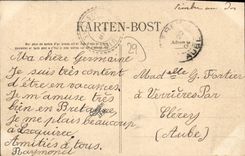 Timbre au Dos
KARTEN-BOST
29
AUBE
Ma chère Germaine
Je suis très content
d'être en vacances
Je m'amuse très
bien en Bretagne
Je me plais beaucoup
à Locquirec.
Amitiés à tous.
Raymond
Mad^elle G. Fortier
à Verrières Par
Clérey
(Aube)